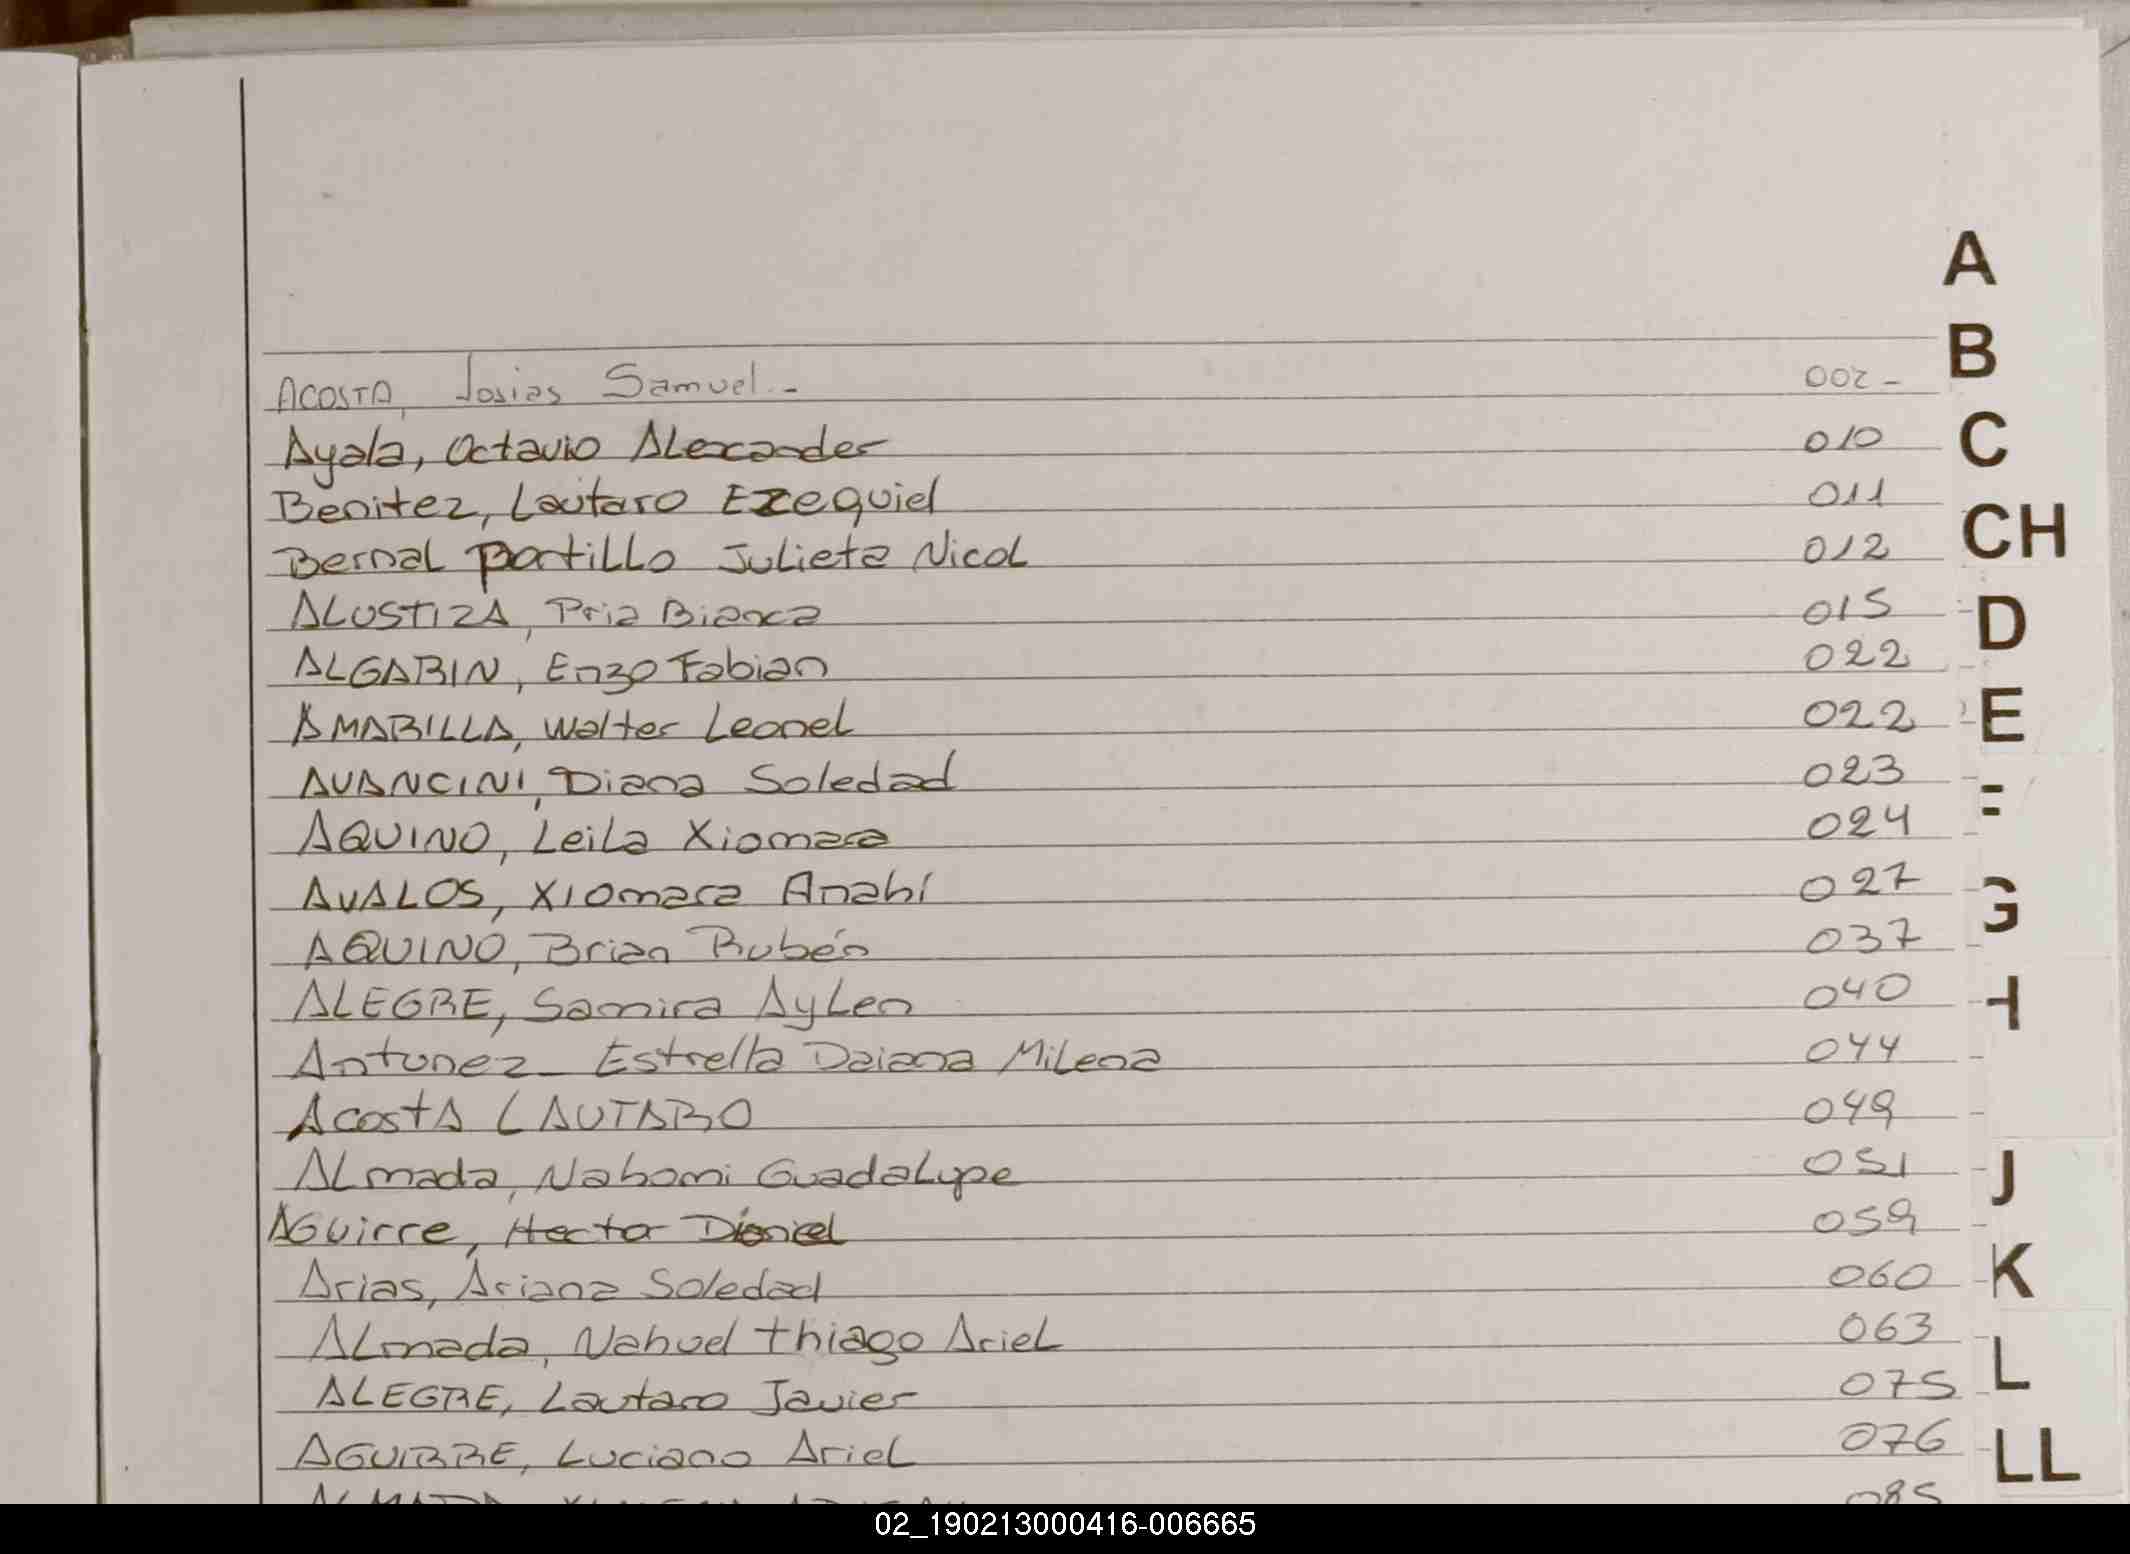 ACOSTA, Josias Samuel.- 002-
Ayala, Octavio ALexander 010
Benitez, Lautaro Ezequiel 011
Bernal PortiLLo Julieta Nicol 012
ALUSTIZA, Pria Bianca 015
ALGARIN, Enzo Fabian 022
AMARILLA, Walter Leonel 022
AVANCINI, Diana Soledad 023
AQUINO, Leila Xiomara 024
AVALOS, Xiomara Anahí 027
AQUINO, Brian Rubén 037
ALEGRE, Samira AyLen 040
Antunez- Estrella Daiana MiLena 044
AcostA LAUTARO 049
ALmada, Nahomi GuadaLupe 051
AGuirre, Hector Daniel 059
Arias, Ariana Soledad 060
ALmada, Nahuel thiago ArieL 063
ALEGRE, Lautaro Javier 075
AGUIRRE, Luciano ArieL 076
085
A
B
C
CH
D
E
F
G
H
J
K
L
LL
02_190213000416-006665